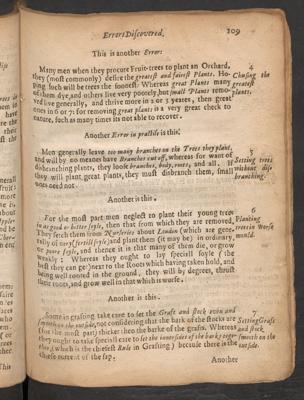 Errors Discovered. 109
This is another Error:
Many men when they procure Fruit-trees to plant an Orchard,
they (most commonly) desire the greatest and fairest Plants. Ho-
ping such will be trees the soonest: Whereas great Plants many
of them dye, and others live very poorely, but small Plants remo-
ved live generally, and thrive more in 2 or 3 yeares, then great
ones in 6 or 7: for removing great plants is a very great check to
nature, such as many times its not able to recover.
4
Chusing the
greatest
plants.
Another Error in practise is this:
Men generally leave too many branches on the Trees they plant,
and will by no meanes have Branches cut off, whereas for want of
disbranching plants, they loose branches, body, roots, and all. If
they will plant great plants, they must disbranch them, small
ones need not.
5
Setting trees
without dis-
branching.
Another is this.
For the most part men neglect to plant their young trees
in as good or better soyle, then that from which they are removed,
They fetch them from Nurseries about London (which are gene-
rally of very fertill soyle) and plant them (it may be) in ordinary,
or poore soyle, and thence it is that many of them die, or grow
weakly: Whereas they ought to lay speciall soyle (the
best they can get) next to the Roots which having taken hold, and
being well rooted in the ground, they will by degrees, thrust
their roots, and grow well in that which is worse.
6
Planting
trees in Worse
mould.
Another is this.
Some in grafting take care to set the Graft and stock even and
smooth on the outside, not considering that the bark of the stocks are
(for the most part) thicker then the barke of the grafts. Whereas
they ought to take speciall care to set the inner sides of the bark, toge-
ther, which is the chiefest Rule in Grafting) because there is the
chiefe current of the sap.
7
Setting Graft
and stock,
smooth on the
outside.
Another